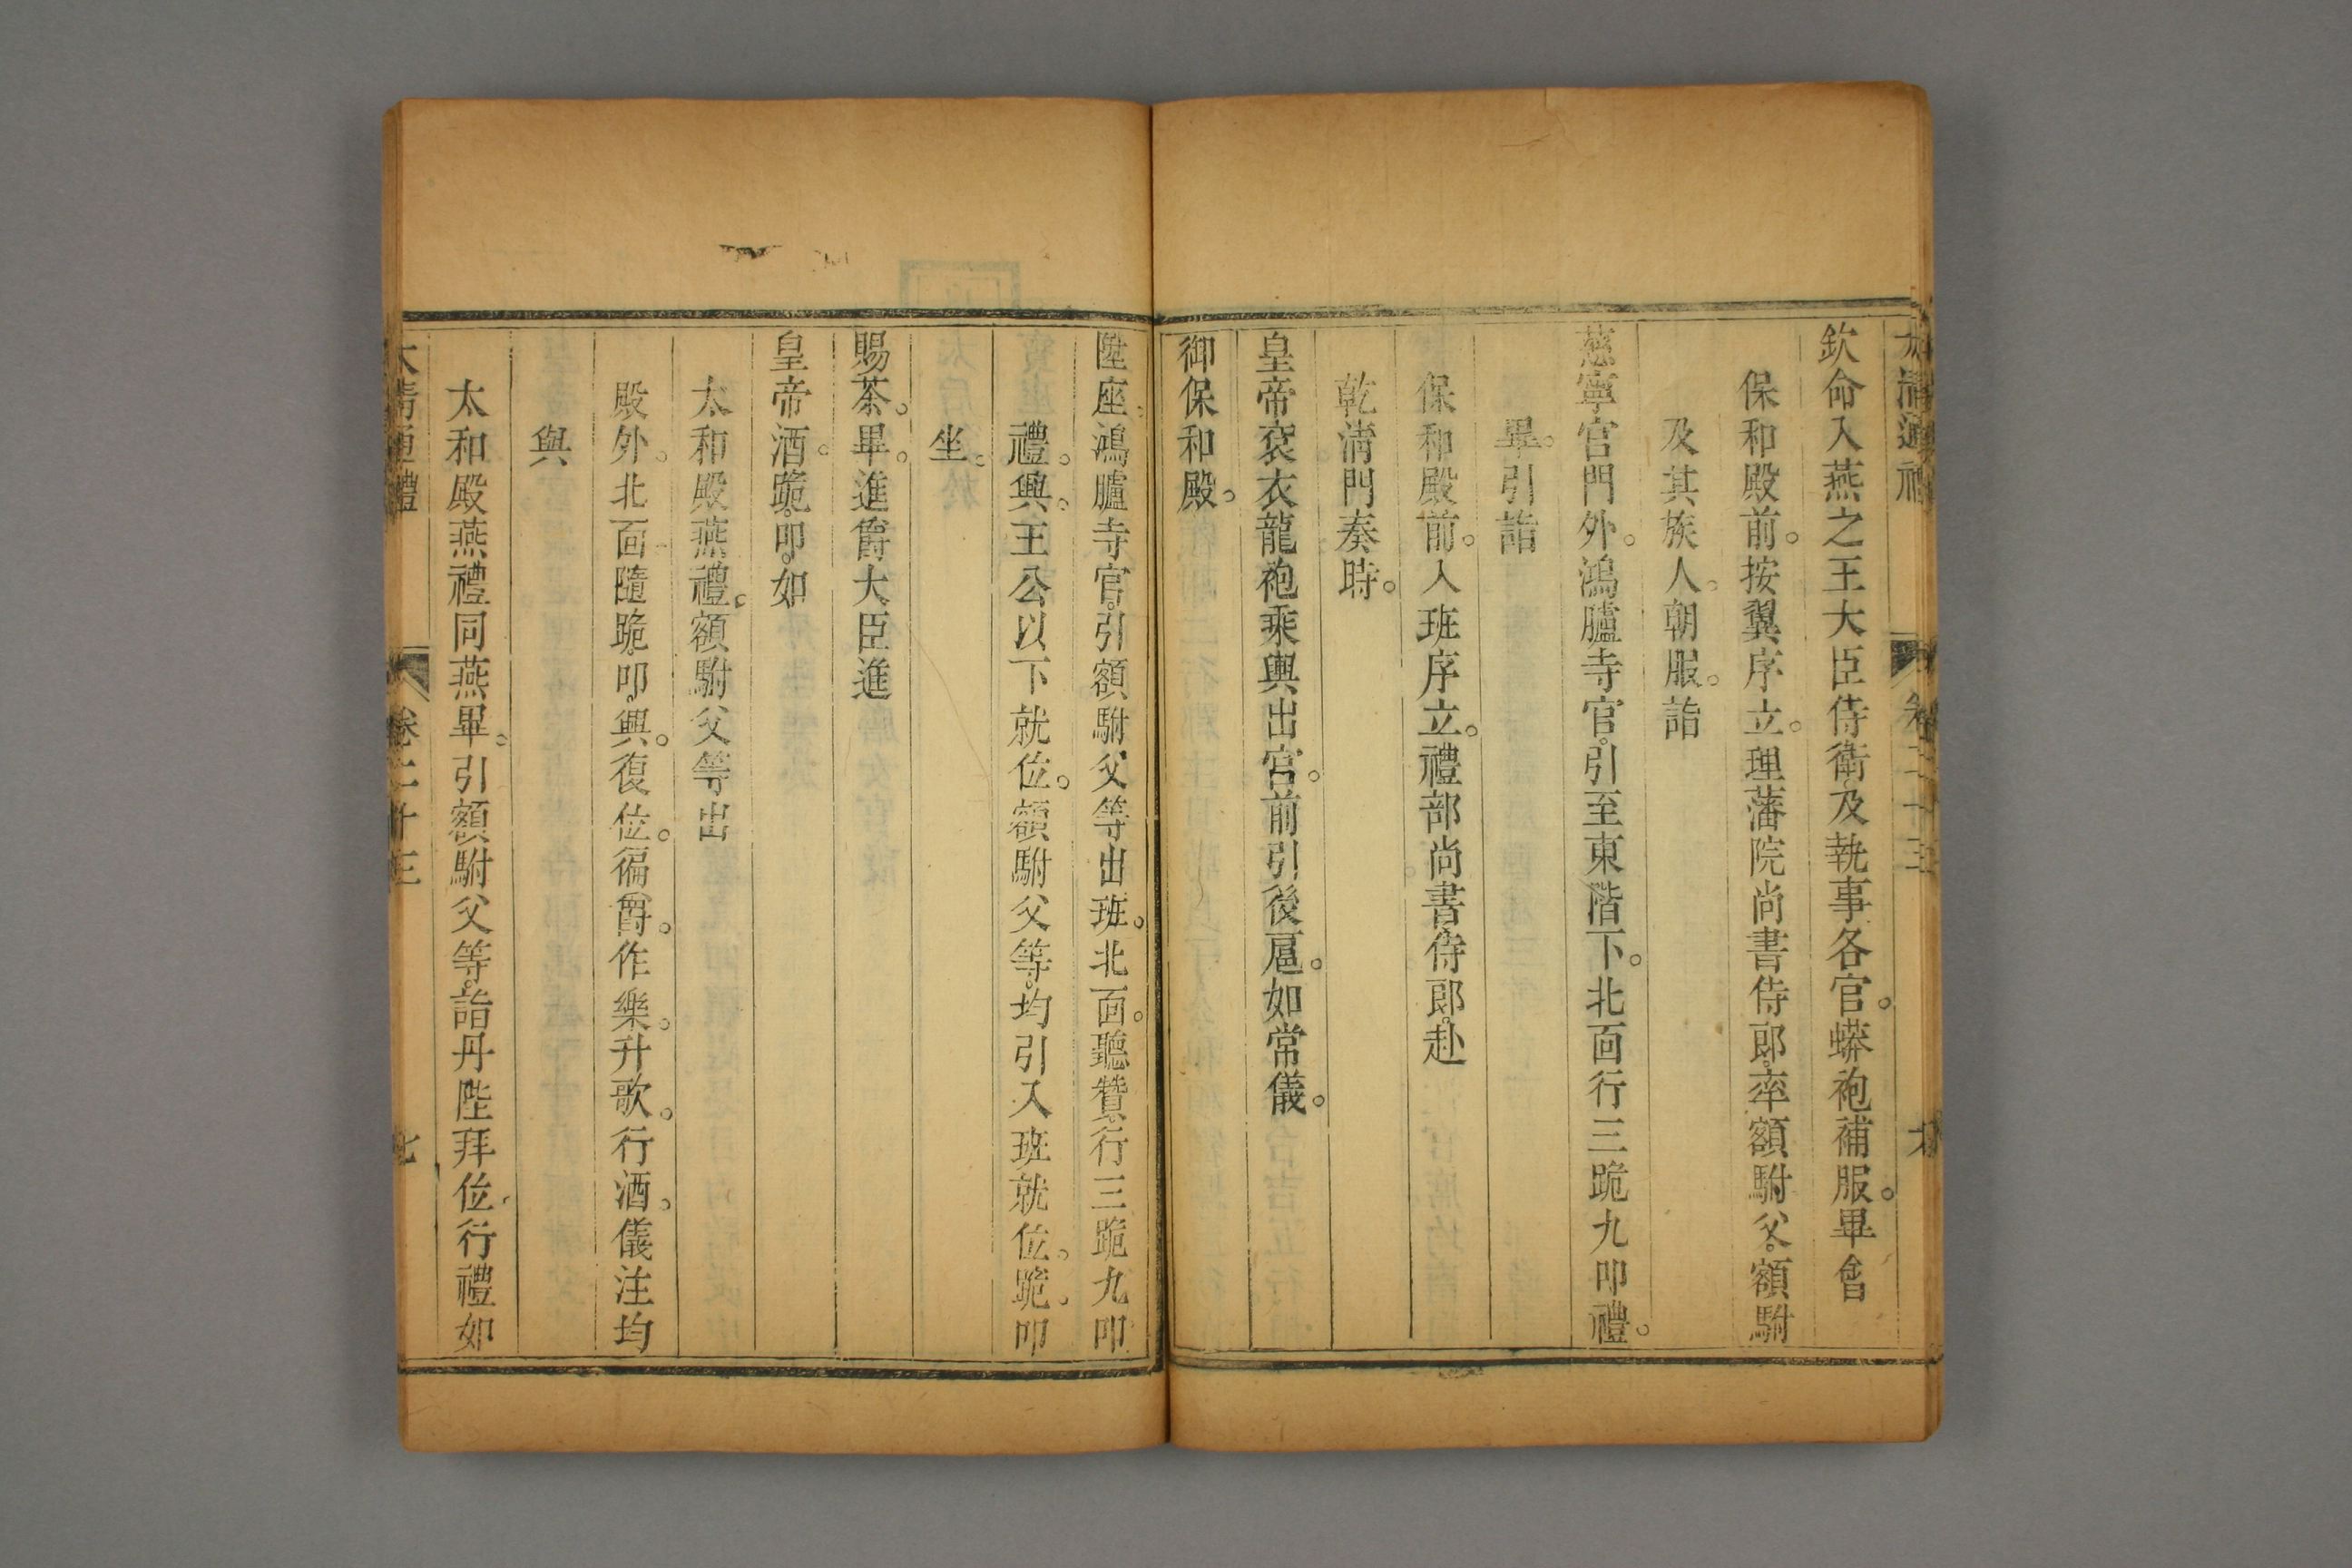 大清通禮 卷二十三
欽命入燕之王大臣侍衛及執事各官。蟒袍補服。畢會
保和殿前。按翼序立。理藩院尚書侍郎。率額駙父。額駙
及其族人。朝服。詣
慈寧宮門外。鴻臚寺官。引至東階下。北面行三跪九叩禮。
畢。引詣
保和殿前。入班序立。禮部尚書侍郎。赴
乾清門奏時。
皇帝袞衣龍袍乘輿出宮。前引後扈。如常儀。
御保和殿。
陞座。鴻臚寺官。引額駙父等出班。北面。聽贊。行三跪九叩
禮。興。王公以下就位。額駙父等。均引入班就位。跪。叩
坐。
賜茶。畢。進爵大臣進
皇帝酒。跪。叩。如
太和殿燕禮。額駙父等出
殿外。北面隨跪。叩。興。復位。徧爵。作樂。升歌。行酒。儀注均
與
太和殿燕禮同燕畢。引額駙父等。詣丹陛拜位。行禮如
大清通禮 卷二十三 七